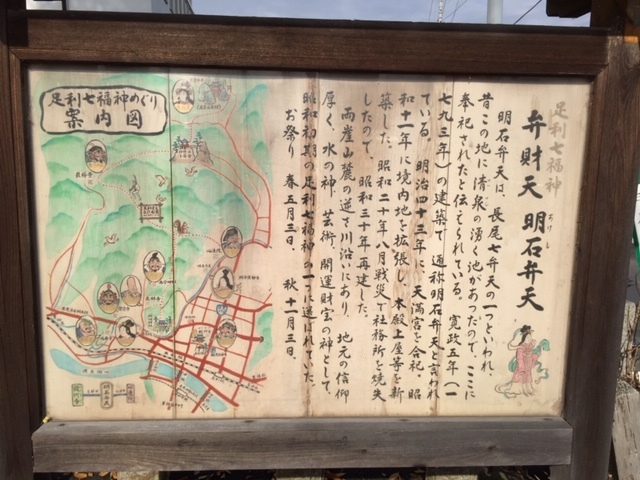 足利七福神
弁財天 明石弁天
明石弁天は、長尾七弁天の一つといわれ、
昔この地に清泉の湧く池があったので、ここに
奉祀されたと伝えられている。寛政五年(一
七九三年)の建築で 通称明石弁天と言われ
ている。明治四十三年に、天満宮を合祀 昭
和十一年に境内地を拡張し、本殿上屋等を新
築した。昭和二十年八月戦災で社務所を焼失
したので、昭和三十年再建した。
両崖山麓の逆さ川沿いにあり、地元の信仰
厚く、水の神、芸術、開運財宝の神として、
昭和初期の足利七福神の一つに選ばれていた。
お祭り 春五月三日、 秋十一月三日、
足利七福神めぐり
案内図